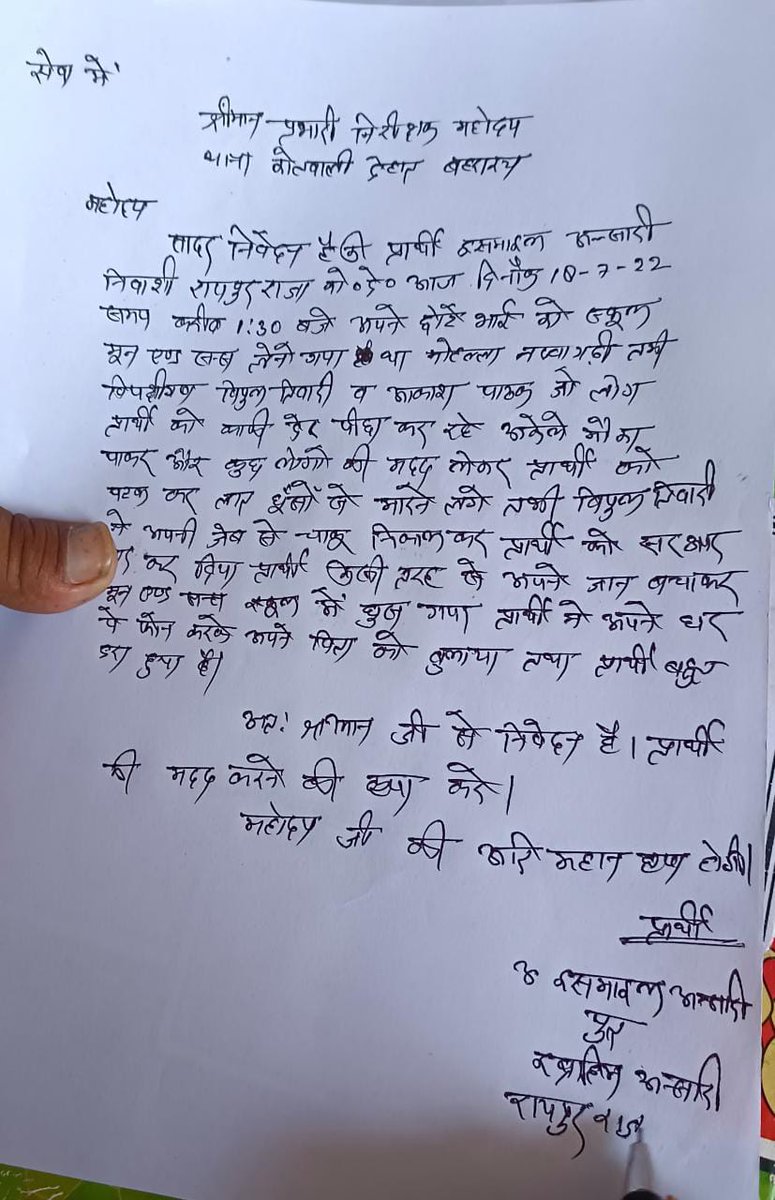 सेवा में
श्रीमान प्रभारी निरीक्षक महोदय
थाना कोतवाली देहात बहराइच
महोदय
सादर निवेदन है की प्रार्थी इसमाइल अन्सारी
निवाशी रायपुर राजा को०दे० आज दिनाँक 18-7-22
समय करीब 1:30 बजे अपने छोटे भाई को स्कूल
सन एण्ड सन्स लेने गया था मोहल्ला नव्वागढ़ी तभी
विपक्षीगण विपुल तिवारी व आकाश पाठक जो लोग
प्रार्थी को काफी देर पीछा कर रहे अकेले मौका
पाकर और कुछ लोगो की मदद लेकर प्रार्थी को
पटक कर लात घूँसों से मारने लगे तभी विपुल तिवारी
ने अपनी जेब से चाकू निकाल कर प्रार्थी को
कर दिया प्रार्थी किसी तरह से अपने जान बचाकर
सन एण्ड सन्स स्कूल में घुस गया प्रार्थी ने अपने घर
पे फोन करके अपने पिता को बुलाया तथा प्रार्थी बहुत
डरा हुआ है।
अतः श्रीमान जी से निवेदन है। प्रार्थी
की मदद करने की कृपा करे।
महोदय जी की अति महान कृपा होगी।
प्रार्थी
इसमाइल अन्सारी
पुत्र
इब्राहिम अन्सारी
रायपुर राजा